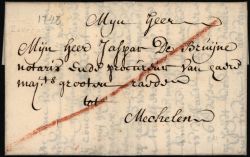 1748
Myn Heer
Mijn Heer Jaspar De Bruÿne
notaris Ende procureur van haere
maj:ts grooten raede
tot
Mechelen